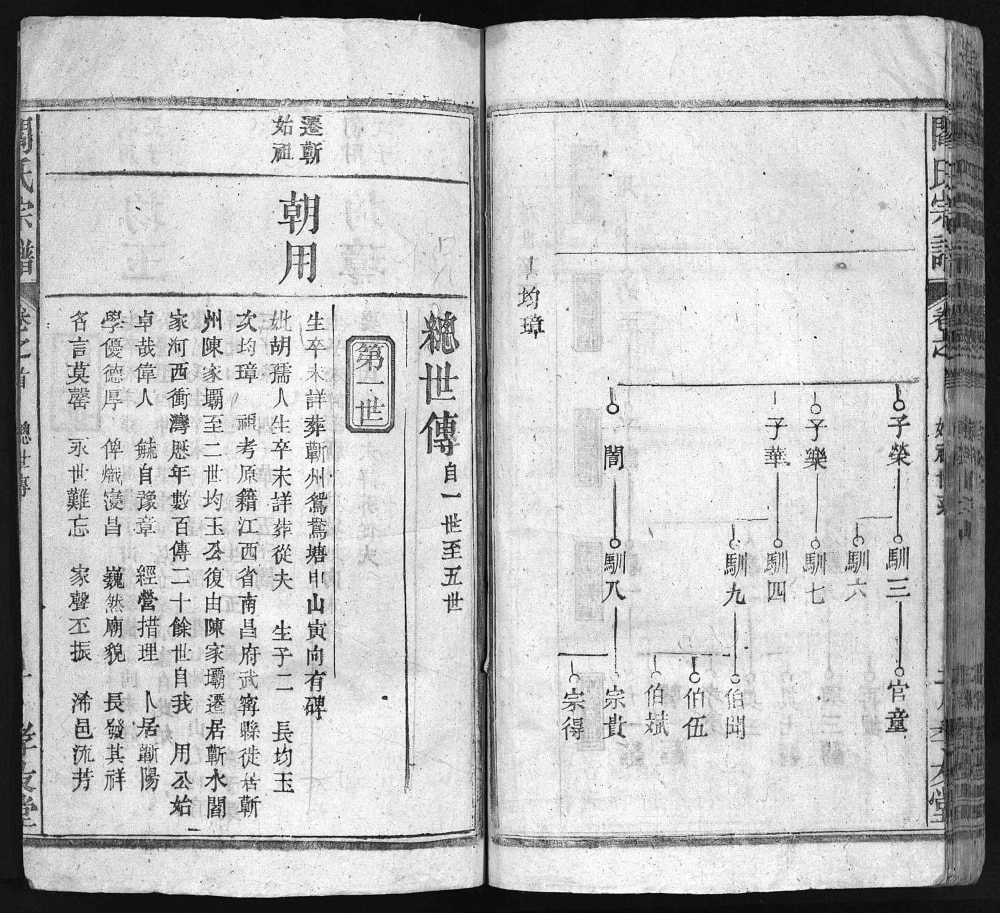 閻氏宗譜
卷之首
孝友堂
子榮
子樂
子華
闇
均璋
馴三
馴六
馴七
馴四
馴九
馴八
官童
伯聞
伯伍
伯斌
宗貴
宗得
總世傳 自一世至五世
第一世
遷蘄始祖
朝用
生卒未詳葬蘄州鴛鴦塘申山寅向有碑
妣胡孺人生卒未詳葬從夫 生子二 長均玉
次均璋 祖考原籍江西省南昌府武寗縣徙居蘄
州陳家壩至二世均玉公復由陳家壩遷居蘄水閻
家河西衝灣歷年數百傳二十餘世自我 用公始
卓哉偉人 毓自豫章 經營措理 卜居蘄陽
學優德厚 俾熾昌 巍然廟貌 長發其祥
名言莫罄 永世難忘 家聲丕振 浠邑流芳
閻氏宗譜
卷之首 總世傳
孝友堂